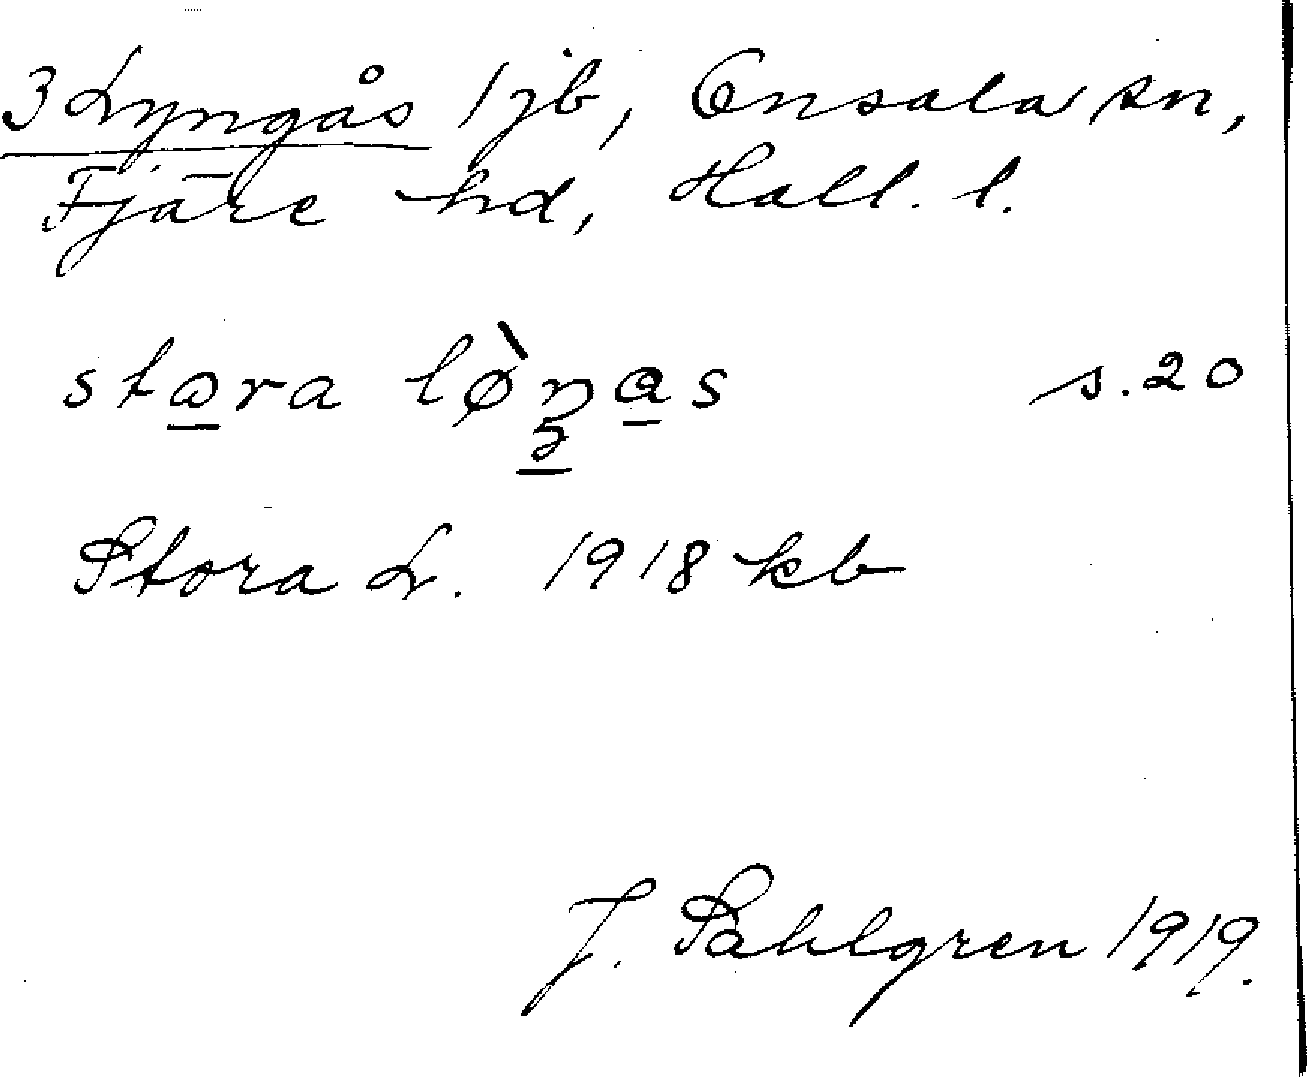 3 Lyngås 1 jb, Onsala sn,
Fjäre hd, Hall. l.
stɷra lø̀ŋas s. 20
Stora L. 1918 kb
J. Sahlgren 1919.